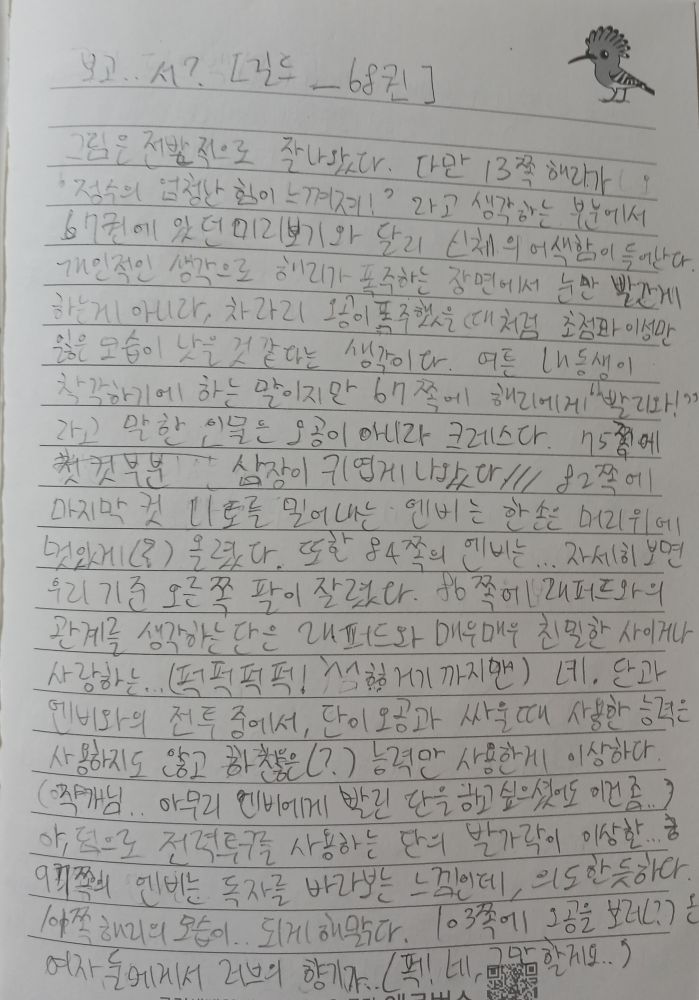 보고.. 서? [길드 _ 68권]
그림은 전발적으로 잘나왔다. 다만 13쪽 해리가
"정수의 엄청난 힘이 느껴져!" 라고 생각하는 부분에서
67권에 있던 미리보기와 달리 신체의 어색함이 늘어난다.
개인적인 생각으로 해리가 폭주하는 장면에서 눈만 빨갛게
하는게 아니라, 차라리 오공이 폭주했을 때처럼 초점과 이성만
잃은 모습이 낫을 것 같다는 생각이다. 여튼 내동생이
착각하기에 하는 말이지만 67쪽에 해리에게 "빨리와!"
라고 말한 인물은 오공이 아니라 크레스다. 75쪽에
첫 컷부분 삼장이 귀엽게 나왔다/// 82쪽에
마지막 컷 마토를 밀어내는 엔비는 한손은 머리위에
멋있게(?) 올렸다. 또한 84쪽의 엔비는... 자세히 보면
우리기준 오른쪽 팔이 잘렸다. 86쪽에 래퍼드와의
관계를 생각하는 단은 래퍼드와 매우매우 친밀한 사이거나
사랑하는...(퍽퍽퍽퍽! 거기까지만) 네. 단과
엔비와의 전투 중에서, 단이 오공과 싸울때 사용한 능력은
사용하지도 않고 (?) 능력만 사용한게 이상하다.
(작가님.. 아무리 엔비에게 발린 단을 하고싶으셨어도 이건 좀..)
아, 덤으로 전력투구를 사용하는 단의 발가락이 이상함...
97쪽의 엔비는 독자를 바라보는 느낌인데, 의도한듯하다.
101쪽 해리의 모습이.. 되게 해맑다. 103쪽에 오공을 보러(?) 온
여자들에게서 러브의 향기가..(퍽! 네, 그만할게요..)